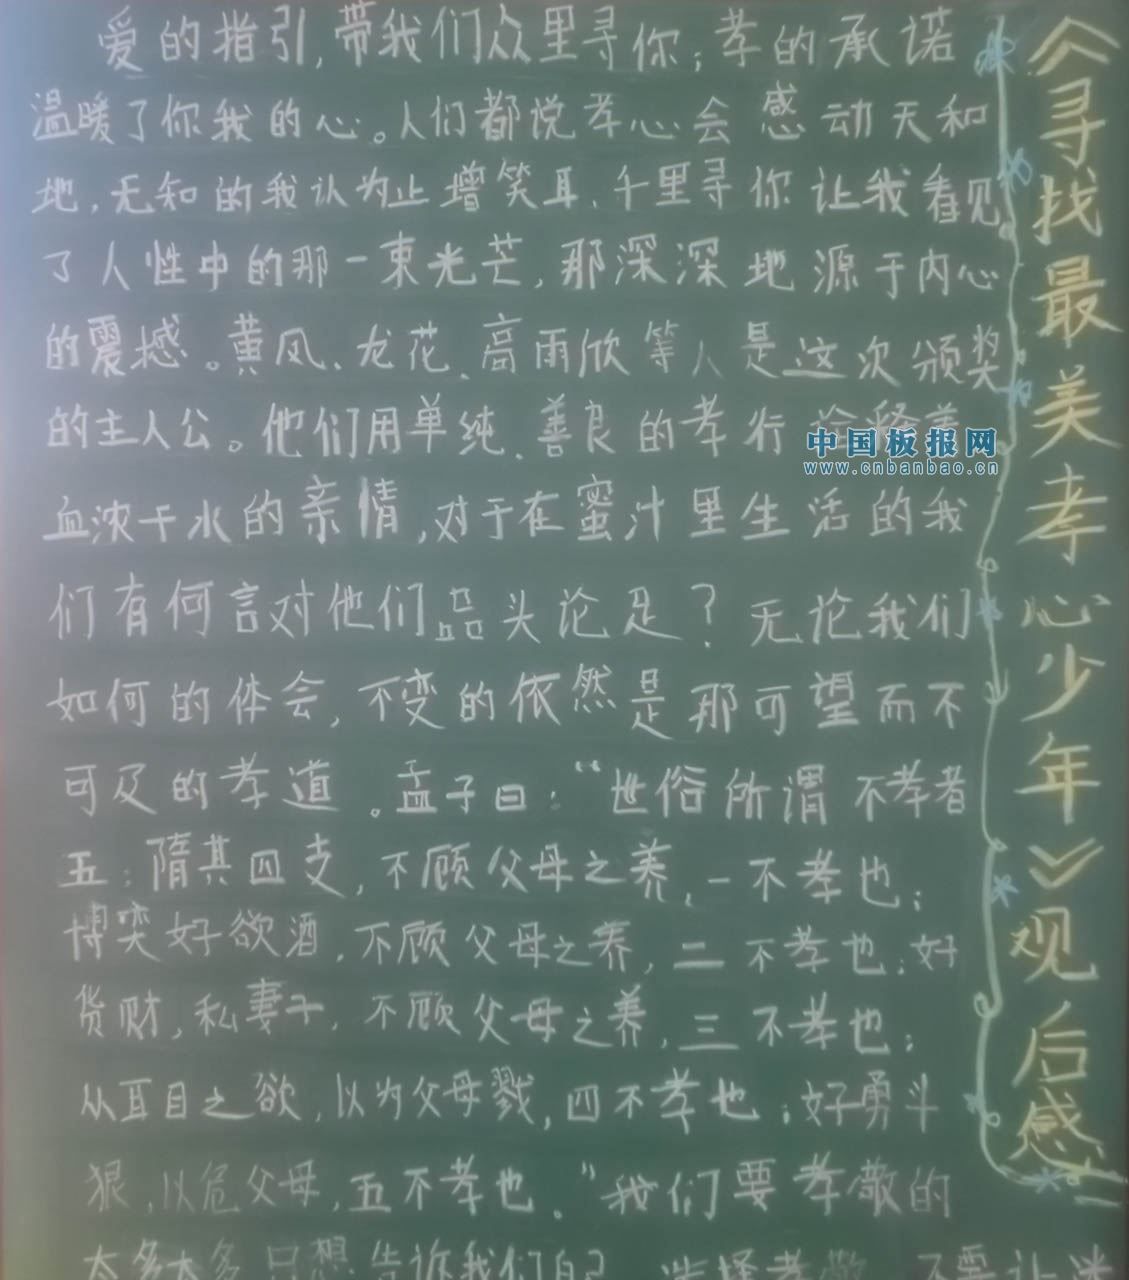 《寻找最美孝心少年》观后感
爱的指引,带我们众里寻你;孝的承诺
温暖了你我的心。人们都说孝心会感动天和
地,无知的我认为止增笑耳、千里寻你让我看见
了人性中的那一束光芒,那深深地源于内心
的震撼。黄凤、龙花、高雨欣等人是这次颁奖
的主人公。他们用单纯、善良的孝行
中国板报网
www.cnbanbao.cn
血浓于水的亲情,对于在蜜汁里生活的我
们有何言对他们品头论足?无论我们
如何的体会,不变的依然是那可望而不
可及的孝道。孟子曰:“世俗所谓不孝者
五:隋其四支,不顾父母之养,一不孝也;
博奕好欲酒,不顾父母之养,二不孝也;好
货财,私妻子,不顾父母之养,三不孝也;
从耳目之欲,以为父母戮,四不孝也;好勇斗
狠,以危父母,五不孝也。”我们要孝敬的
太多太多只想告诉我们自己